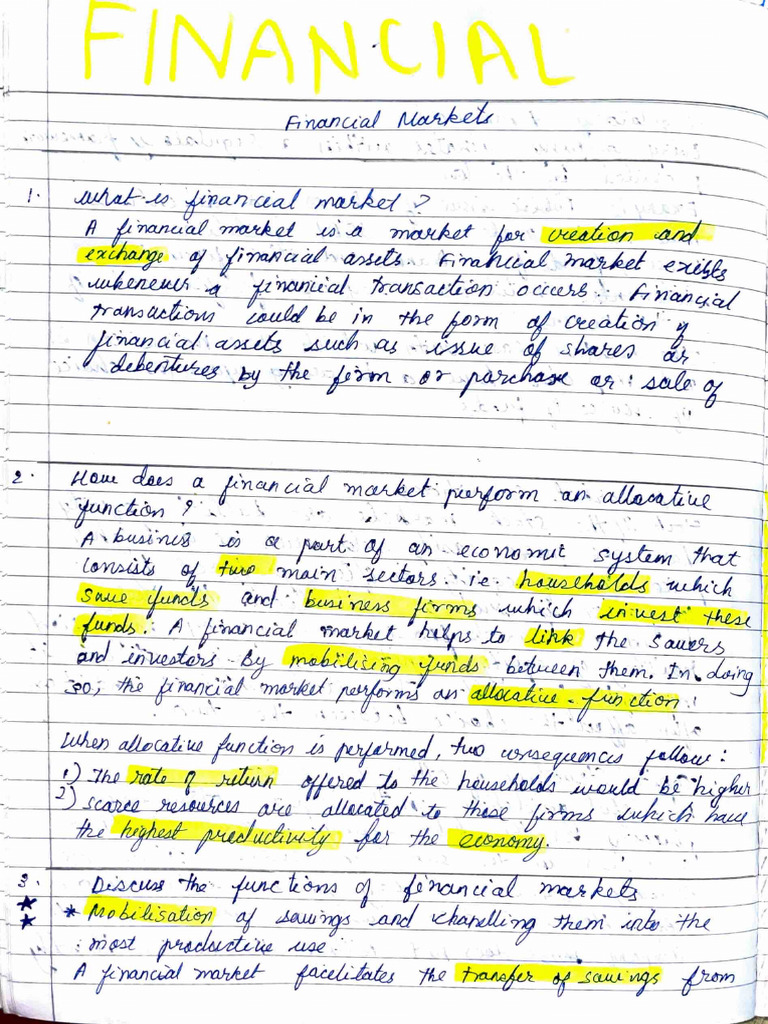 FINANCIAL
Financial Markets
1. What is financial market?
A financial market is a market for creation and
exchange of financial assets. Financial market exists
whenever a financial transaction occurs. Financial
transactions could be in the form of creation of
financial assets such as issue of shares or
debentures by the firm or purchase or sale of
2. How does a financial market perform an allocative
function?
A business is a part of an economic system that
consists of two main sectors i.e households which
save funds and business firms which invest these
funds. A financial market helps to link the savers
and investors by mobilizing funds between them. In doing
so, the financial market performs an allocative function
When allocative function is performed, two consequences follow:
1) The rate of return offered to the households would be higher
2) scarce resources are allocated to those firms which have
the highest productivity for the economy.
3. Discuss the functions of financial markets
* Mobilisation of savings and chanelling them into the
most productive use:
A financial market facilitates the transfer of savings from